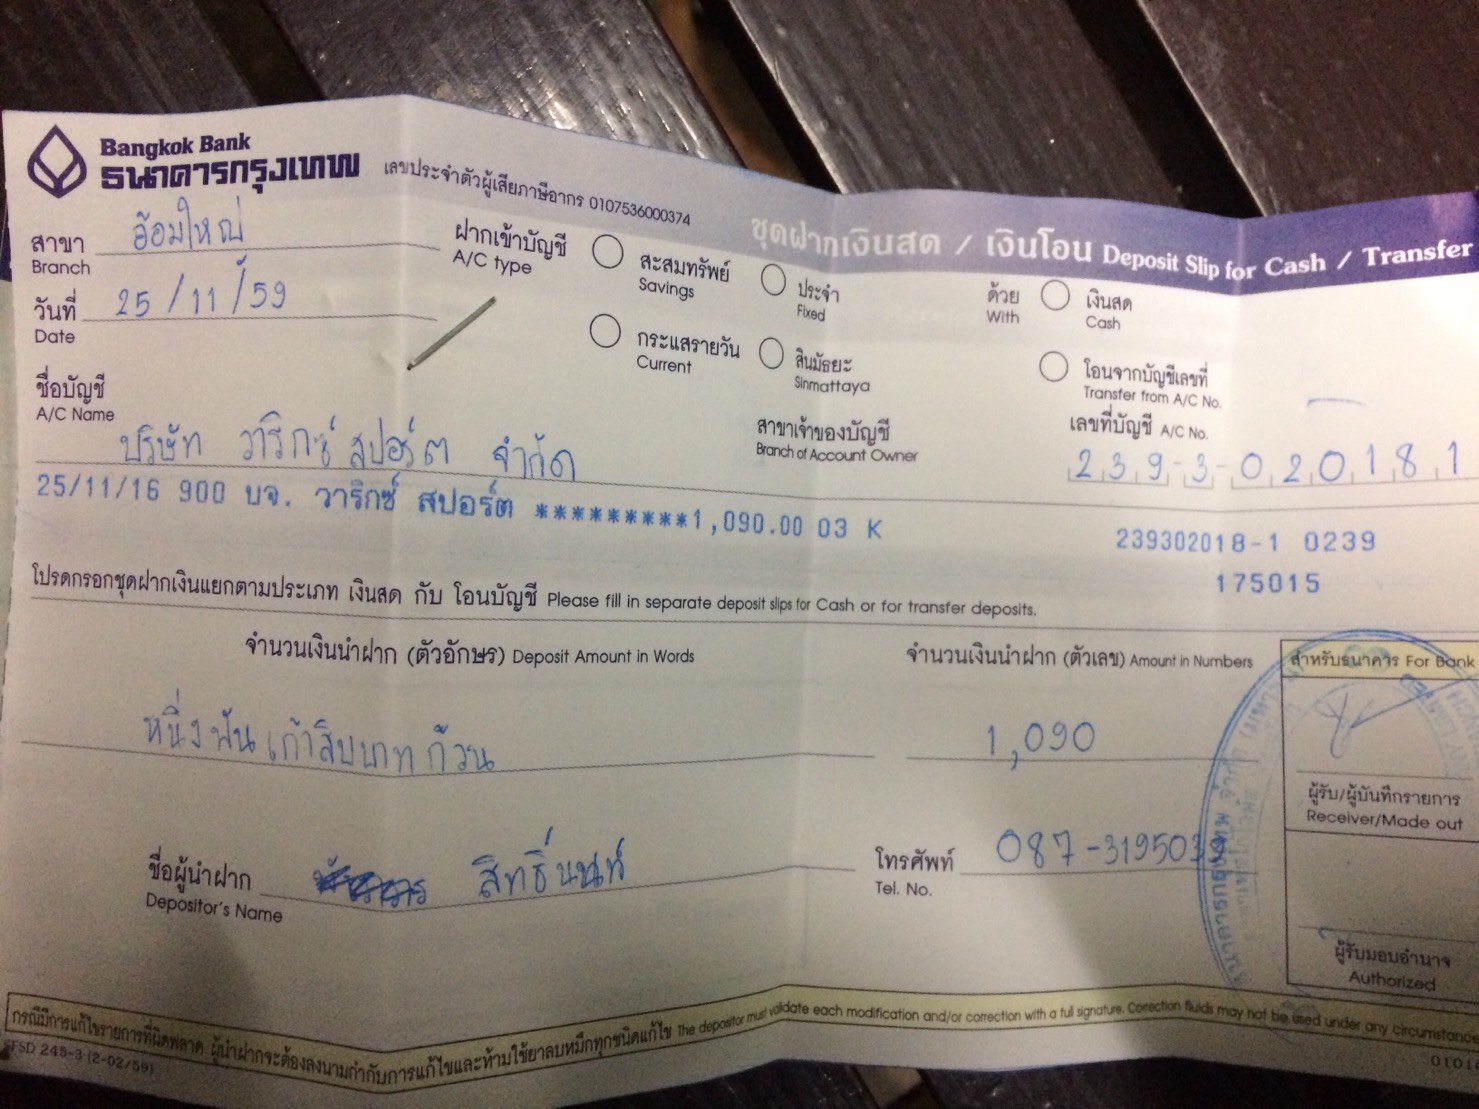 Bangkok Bank
ธนาคารกรุงเทพ
เลขประจำตัวผู้เสียภาษีอากร 0107536000374
ชุดฝากเงินสด / เงินโอน Deposit Slip for Cash / Transfer
สาขา อ้อมใหญ่
Branch
วันที่ 25/11/59
Date
ฝากเข้าบัญชี
A/C type
สะสมทรัพย์
Savings
ประจำ
Fixed
กระแสรายวัน
Current
สินมัธยะ
Sinmattaya
ด้วย
With
เงินสด
Cash
โอนจากบัญชีเลขที่
Transfer from A/C No.
ชื่อบัญชี
A/C Name
บริษัท วาริกซ์ สปอร์ต จำกัด
สาขาเจ้าของบัญชี
Branch of Account Owner
เลขที่บัญชี A/C No.
239-3-020181
25/11/16 900 บจ. วาริกซ์ สปอร์ต **********1,090.00 03 K
239302018-1 0239
175015
โปรดกรอกชุดฝากเงินแยกตามประเภท เงินสด กับ โอนบัญชี Please fill in separate deposit slips for Cash or for transfer deposits.
จำนวนเงินนำฝาก (ตัวอักษร) Deposit Amount in Words
จำนวนเงินนำฝาก (ตัวเลข) Amount in Numbers
สำหรับธนาคาร For Bank
หนึ่งพันเก้าสิบบาทถ้วน
1,090
ผู้รับ/ผู้บันทึกรายการ
Receiver/Made out
ชื่อผู้นำฝาก สิทธิ์นนท์
Depositor's Name
โทรศัพท์ 087-3195039
Tel. No.
ผู้รับมอบอำนาจ
Authorized
กรณีมีการแก้ไขรายการที่ผิดพลาด ผู้นำฝากจะต้องลงนามกำกับการแก้ไขและห้ามใช้ยาลบหมึกทุกชนิดแก้ไข The depositor must validate each modification and/or correction with a full signature. Correction fluids may not be used under any circumstance
FSD 245-3 (2-02/59)